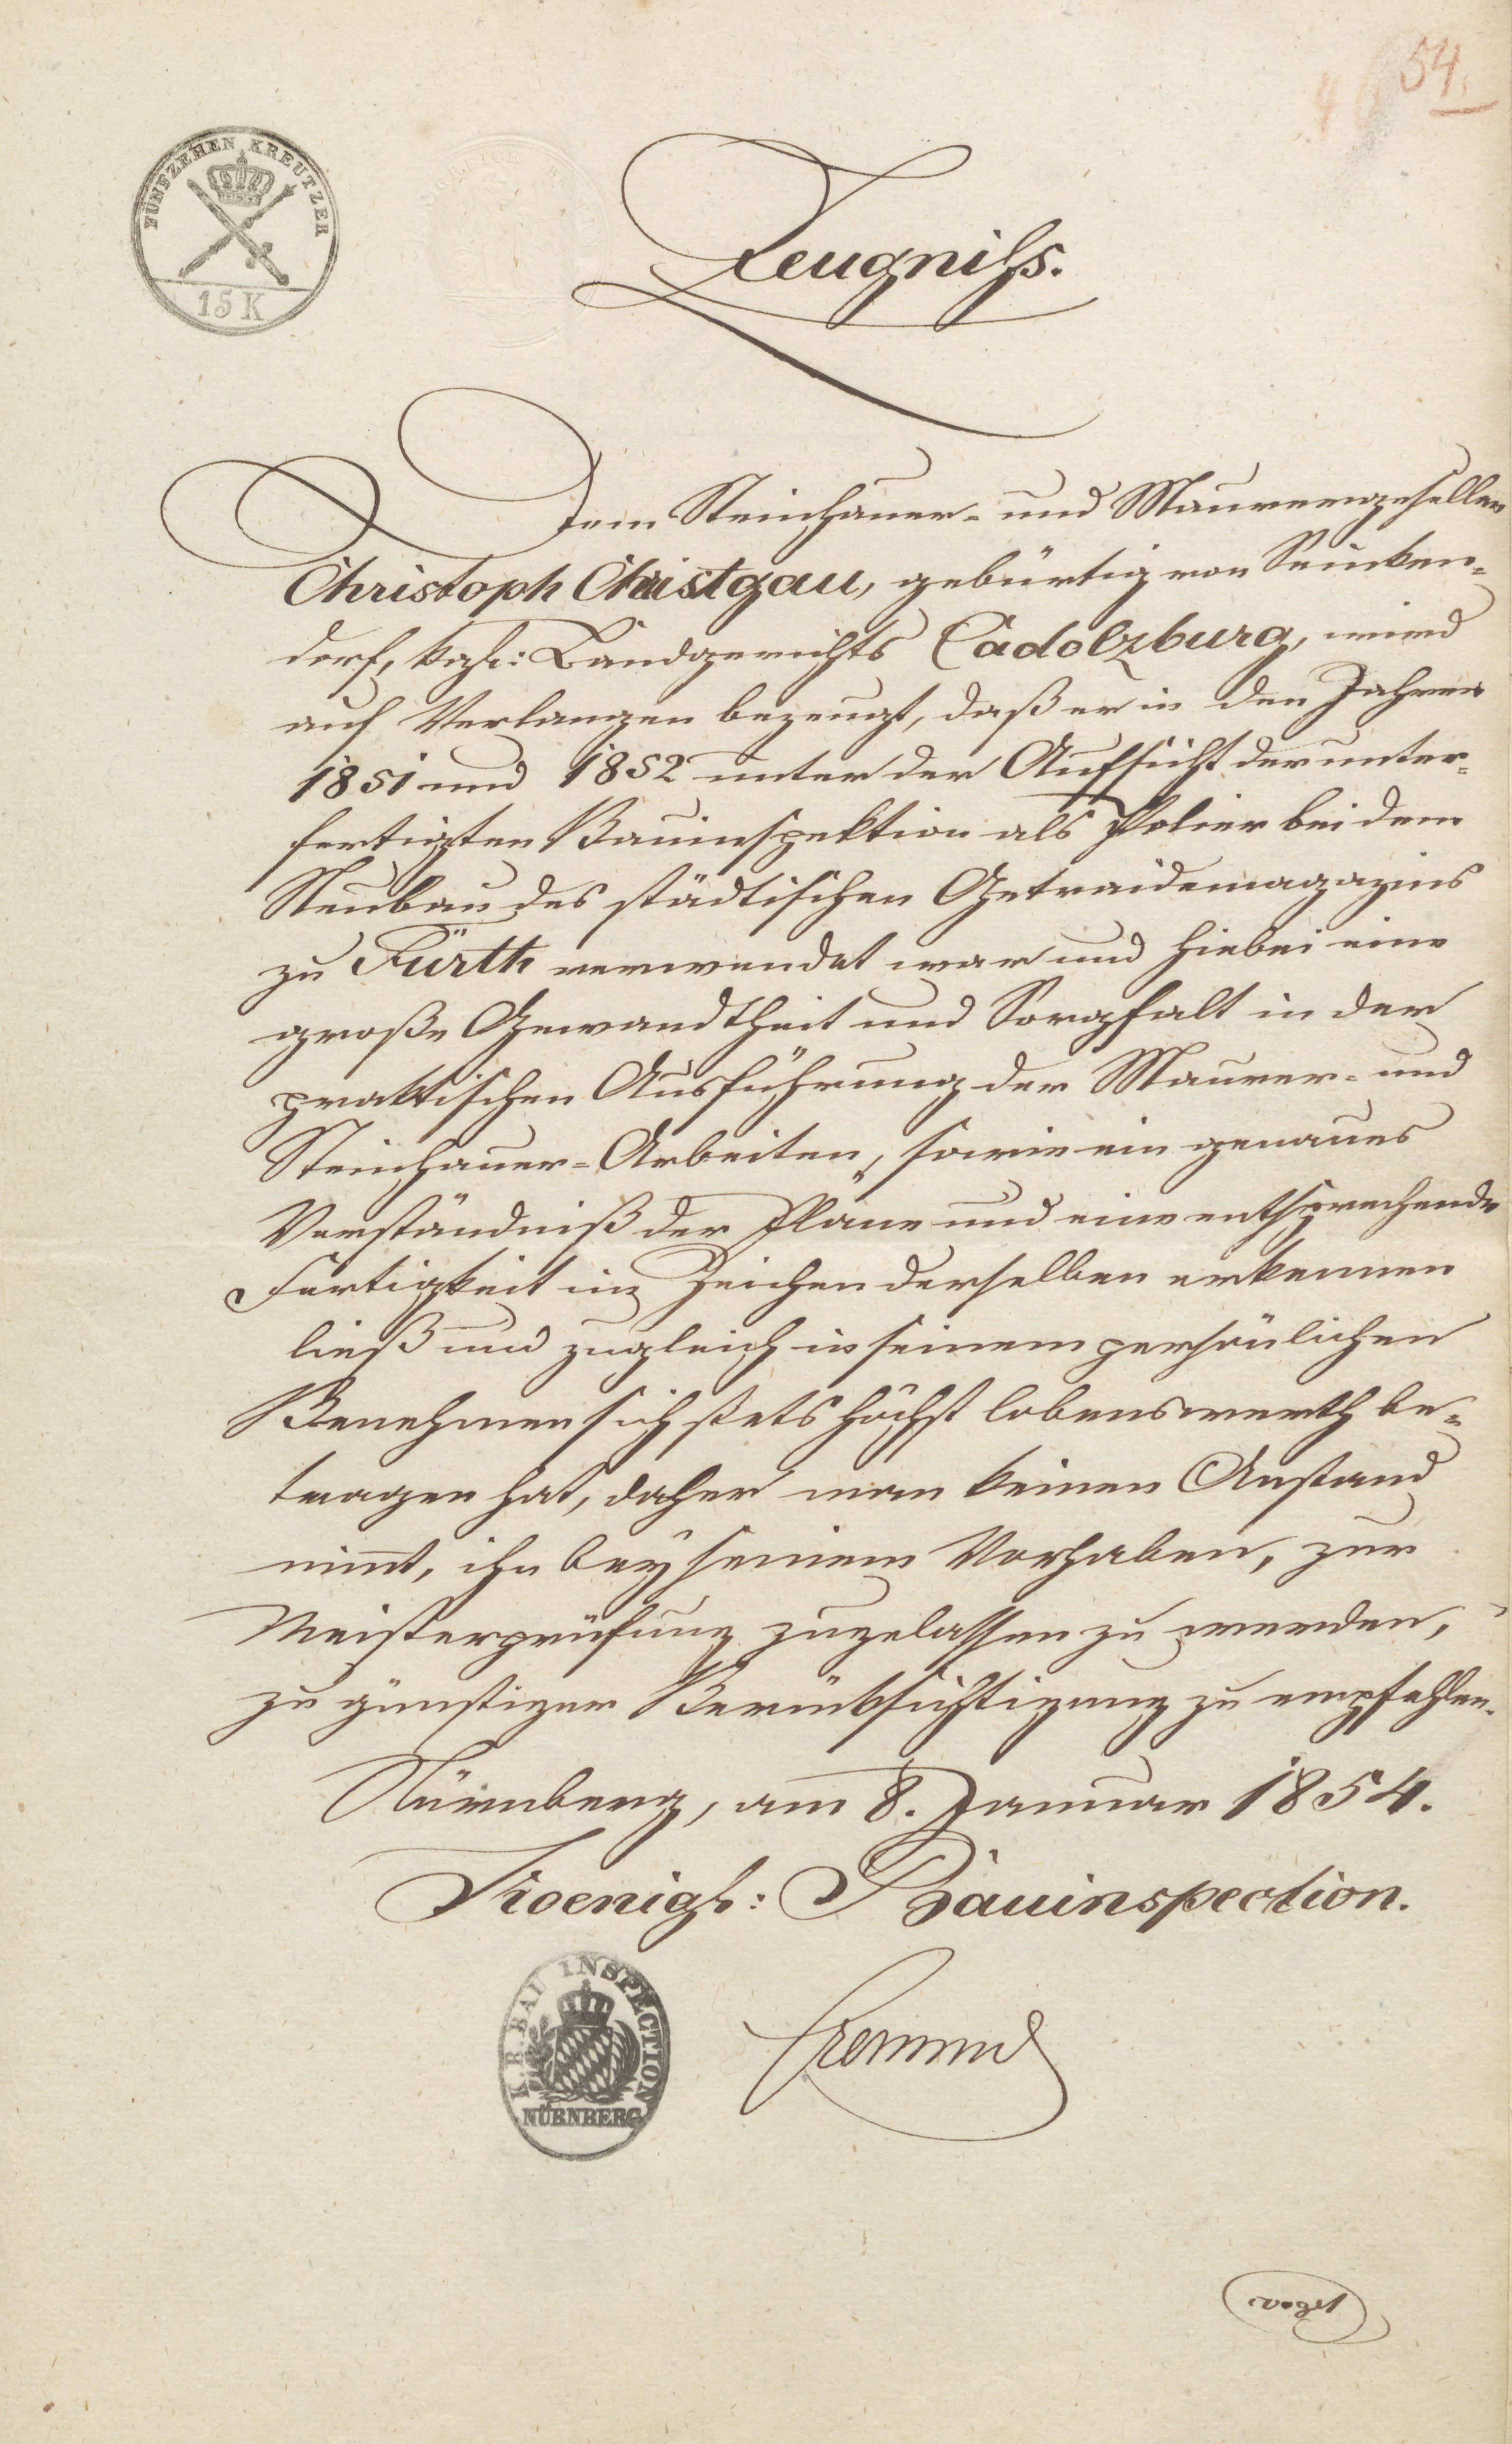 54.
FÜNFZEHEN KREUTZER
15 K
Zeugniß.
Dem Steinhauer- und Maurergesellen
Christoph Christgau, gebürtig von Seicken-
dorf, kgl: Landgerichts Cadolzburg, wird
auf Verlangen bezeugt, daß er in den Jahren
1851 und 1852 unter der Aufsicht der unter-
fertigten Bauinspektion als Polier bei dem
Neubau des städtischen Getraidemagazins
zu Fürth verwendet war und hiebei eine
große Gewandtheit und Sorgfalt in der
praktischen Ausführung der Maurer- und
Steinhauer-Arbeiten, sowie ein genaues
Verständniß der Pläne und eine entsprechende
Fertigkeit im Zeichen derselben erkennen
ließ und zugleich in seinem persönlichen
Benehmen sich stets höchst lobenswerth be-
tragen hat, daher man keinen Anstand
nimt, ihn bey seinem Vorhaben, zur
Meisterprüfung zugelassen zu werden,
zu günstiger Berücksichtigung zu empfehlen.
Nürnberg, am 8. Januar 1854.
Koenigl: Bauinspection.
K. B. BAU INSPECTION
NÜRNBERG